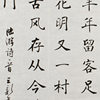 年留客足
花明又一村
古风存从今
门
陆游诗一首